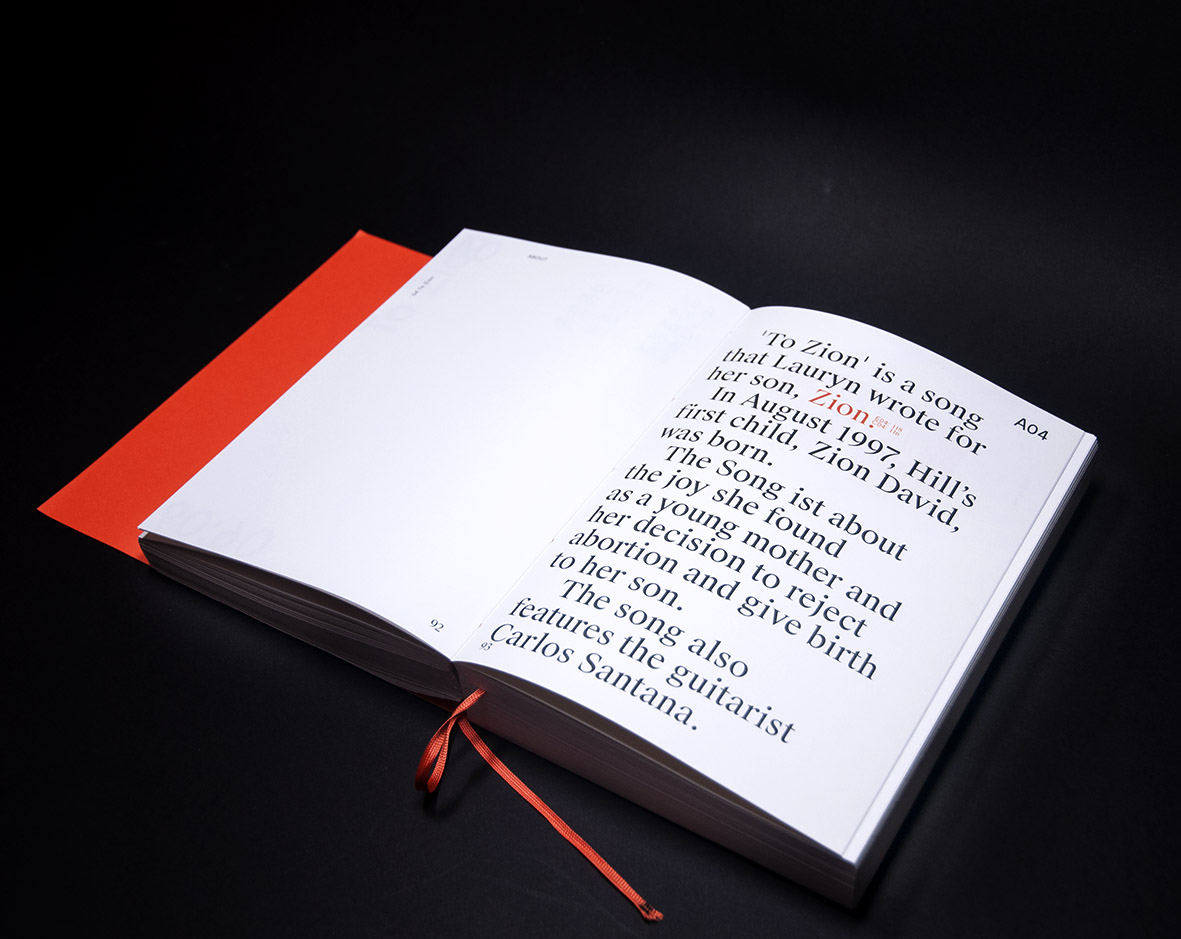 ABOUT
92
'To Zion' is a song
that Lauryn wrote for
her son, Zion.
In August 1997, Hill's
first child, Zion David,
was born.
The Song ist about
the joy she found
as a young mother and
her decision to reject
abortion and give birth
to her son.
The song also
features the guitarist
Carlos Santana.
A04
93